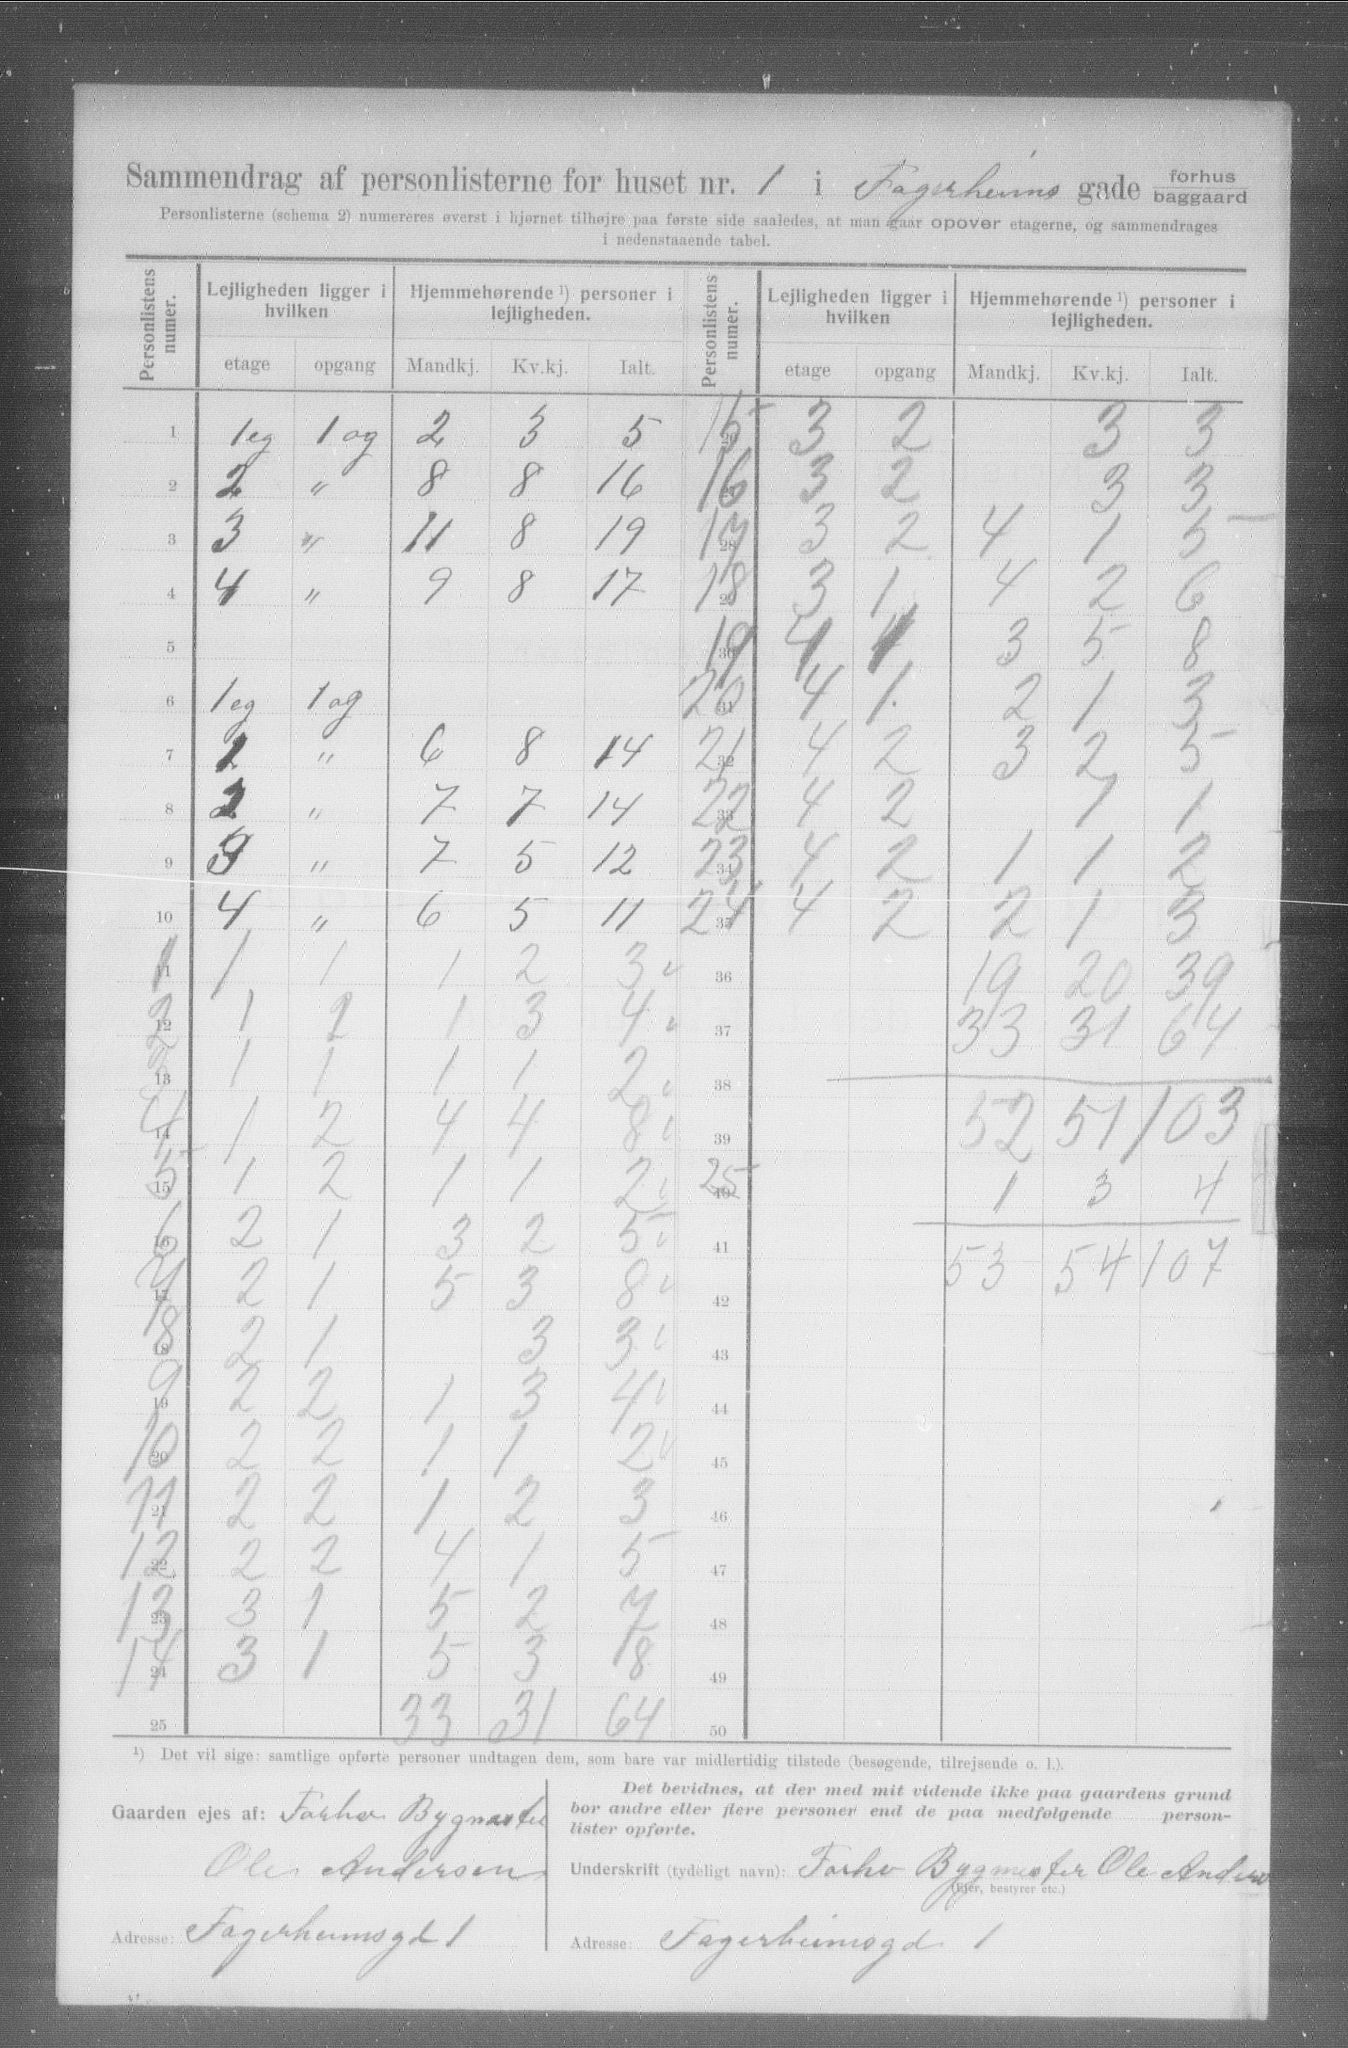 Sammendrag af personlisterne for huset nr. 1 i Fagerheims gade forhus baggaard
Personlisterne (schema 2) numereres øverst i hjørnet tilhøjre paa første side saaledes, at man gaar opover etagerne, og sammendrages
i nedenstaaende tabel.
Personlistens numer. Lejligheden ligger i hvilken Hjemmehørende ¹) personer i lejligheden. Personlistens numer. Lejligheden ligger i hvilken Hjemmehørende ¹) personer i lejligheden.
etage opgang Mandkj. Kv.kj. Ialt. etage opgang Mandkj. Kv.kj. Ialt.
1 1 eg 1 og 2 3 5 15 3 2 3 3
2 2 " 8 8 16 16 3 2 3 3
3 3 " 11 8 19 17 28 3 2 4 1 5
4 4 " 9 8 17 18 29 3 1 4 2 6
5 19 30 4 1 3 5 8
6 1 eg 1 og 20 31 4 1. 2 1 3
7 1 " 6 8 14 21 32 4 2 3 2 5
8 2 " 7 7 14 22 33 4 2 1 1
9 3 " 7 5 12 23 34 4 2 1 1 2
10 4 " 6 5 11 24 35 4 2 2 1 3
1 11 1 1 1 2 3 36 19 20 39
2 12 1 2 1 3 4 37 33 31 64
3 13 1 1 1 1 2 38
4 14 1 2 4 4 8 39 52 51 103
5 15 1 2 1 1 2 25 40 1 3 4
6 16 2 1 3 2 5 41 53 54 107
7 17 2 1 5 3 8 42
8 18 2 1 3 3 43
9 19 2 2 1 3 4 44
10 20 2 2 1 1 2 45
11 21 2 2 1 2 3 46
12 22 2 2 4 1 5 47
13 23 3 1 5 2 7 48
14 24 3 1 5 3 8 49
25 33 31 64 50
¹) Det vil sige: samtlige opførte personer undtagen dem, som bare var midlertidig tilstede (besøgende, tilrejsende o. l.).
Gaarden ejes af: Forhv Bygmester
Ole Andersen
Adresse: Fagerheimsgd 1
Det bevidnes, at der med mit vidende ikke paa gaardens grund
bor andre eller flere personer end de paa medfølgende person-
lister opførte.
Underskrift (tydeligt navn): Forhv Bygmester Ole Anders
(Ejer, bestyrer etc.)
Adresse: Fagerheimsgd 1